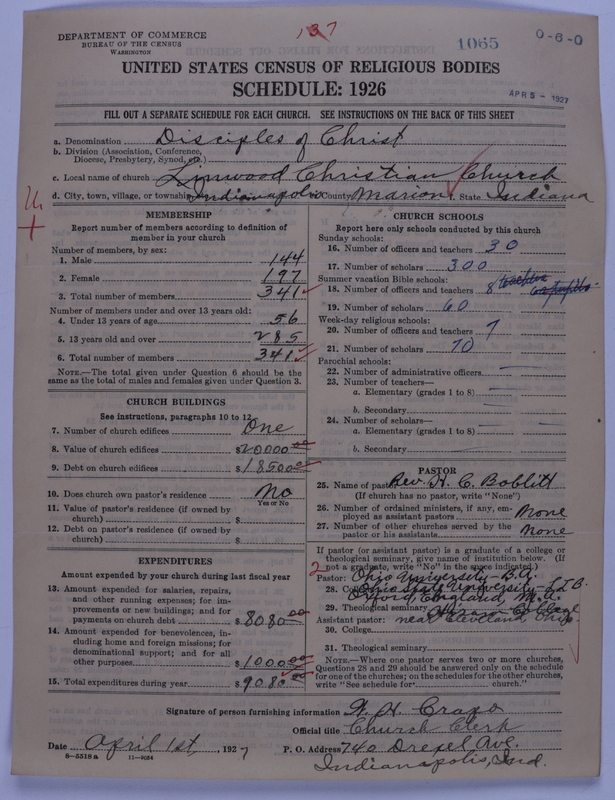 137
1065
0-6-0
DEPARTMENT OF COMMERCE
BUREAU OF THE CENSUS
WASHINGTON
UNITED STATES CENSUS OF RELIGIOUS BODIES
SCHEDULE: 1926
APR 5 - 1927
FILL OUT A SEPARATE SCHEDULE FOR EACH CHURCH. SEE INSTRUCTIONS ON THE BACK OF THIS SHEET
a. Denomination Disciples of Christ
b. Division (Association, Conference, Diocese, Presbytery, Synod, etc.)
c. Local name of church Linwood Christian Church
d. City, town, village, or township Indianapolis County Marion f. State Indiana
MEMBERSHIP
Report number of members according to definition of member in your church
Number of members, by sex:
1. Male 144
2. Female 197
3. Total number of members 341
Number of members under and over 13 years old:
4. Under 13 years of age 56
5. 13 years old and over 285
6. Total number of members 341
NOTE.—The total given under Question 6 should be the same as the total of males and females given under Question 3.
CHURCH BUILDINGS
See instructions, paragraphs 10 to 12
7. Number of church edifices One
8. Value of church edifices $20000.00
9. Debt on church edifices $18500.00
10. Does church own pastor's residence No
Yes or No
11. Value of pastor's residence (if owned by church) $
12. Debt on pastor's residence (if owned by church) $
EXPENDITURES
Amount expended by your church during last fiscal year
13. Amount expended for salaries, repairs, and other running expenses; for improvements or new buildings; and for payments on church debt $8080.00
14. Amount expended for benevolences, including home and foreign missions; for denominational support; and for all other purposes $1000.00
15. Total expenditures during year $9080.00
CHURCH SCHOOLS
Report here only schools conducted by this church
Sunday schools:
16. Number of officers and teachers 30
17. Number of scholars 300
Summer vacation Bible schools:
18. Number of officers and teachers 8
19. Number of scholars 60
Week-day religious schools:
20. Number of officers and teachers 7
21. Number of scholars 70
Parochial schools:
22. Number of administrative officers —
23. Number of teachers—
a. Elementary (grades 1 to 8) —
b. Secondary —
24. Number of scholars—
a. Elementary (grades 1 to 8) —
b. Secondary —
PASTOR
25. Name of pastor Rev. H. C. Boblitt
(If church has no pastor, write "None")
26. Number of ordained ministers, if any, employed as assistant pastors None
27. Number of other churches served by the pastor or his assistants None
If pastor (or assistant pastor) is a graduate of a college or theological seminary, give name of institution below. (If not a graduate, write "No" in the space indicated.)
2
Pastor: Ohio University - B.A.
28. College Ohio State University
Oxford, England M.A.
29. Theological seminary Hiram College
Assistant pastor: near Cleveland, Ohio
30. College
31. Theological seminary
NOTE.—Where one pastor serves two or more churches, Questions 28 and 29 should be answered only on the schedule for one of the churches; on the schedules for the other churches, write "See schedule for church."
Signature of person furnishing information Crapo
Official title Church Clerk
Date April 1st, 1927 P. O. Address 740 Drexel Ave.
8-5518a 11-9024
Indianapolis, Ind.